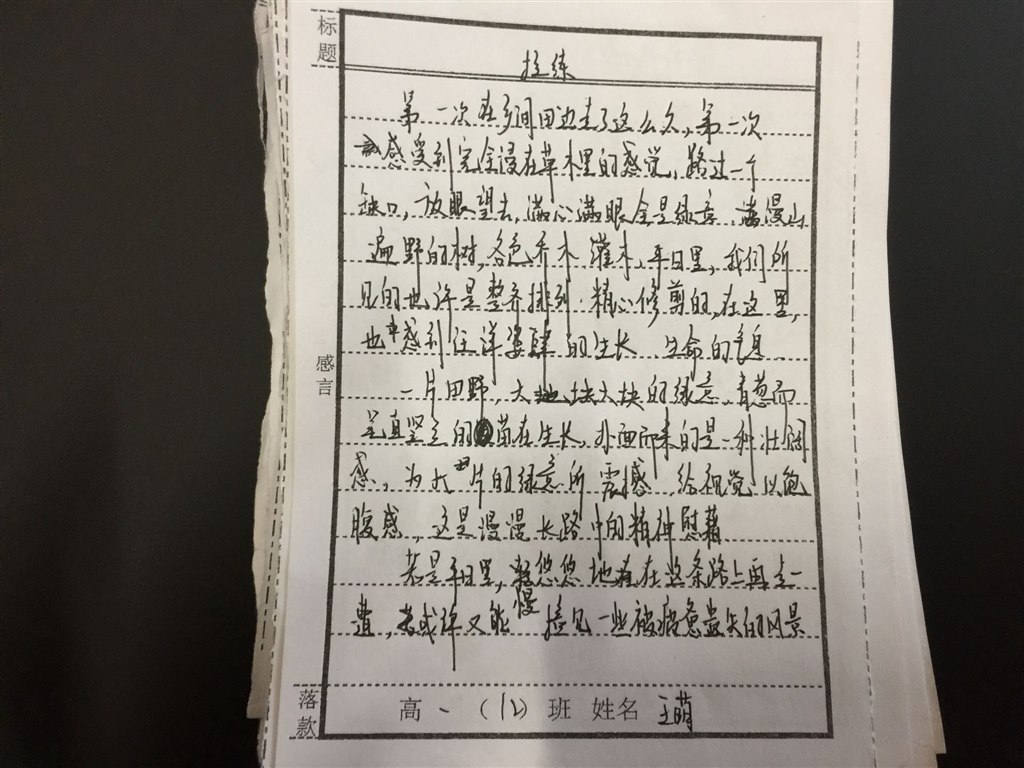 标题
拉练
第一次在乡间田边走了这么久,第一次
感受到完全浸在草木里的感觉,路过一个
缺口,放眼望去,满心满眼全是绿意,漫山
遍野的树,各色乔木,灌木,平日里,我们所
见的也许是整齐排列,精心修剪的,在这里,
也中感到汪洋姿肆的生长,生命的气息.
感言
一片田野,大地块大块的绿意,青葱而
笔直竖立的苗在生长,扑面而来的是一种壮阔
感,为大片的绿意所震撼,给视觉以饱
腹感,这是漫漫长路中的精神慰藉.
若是平日里,悠悠地在这条路上再走一
遭,或许又能慢 捡见一些被疲惫丢失的风景
落款
高一(12)班 姓名 王萌